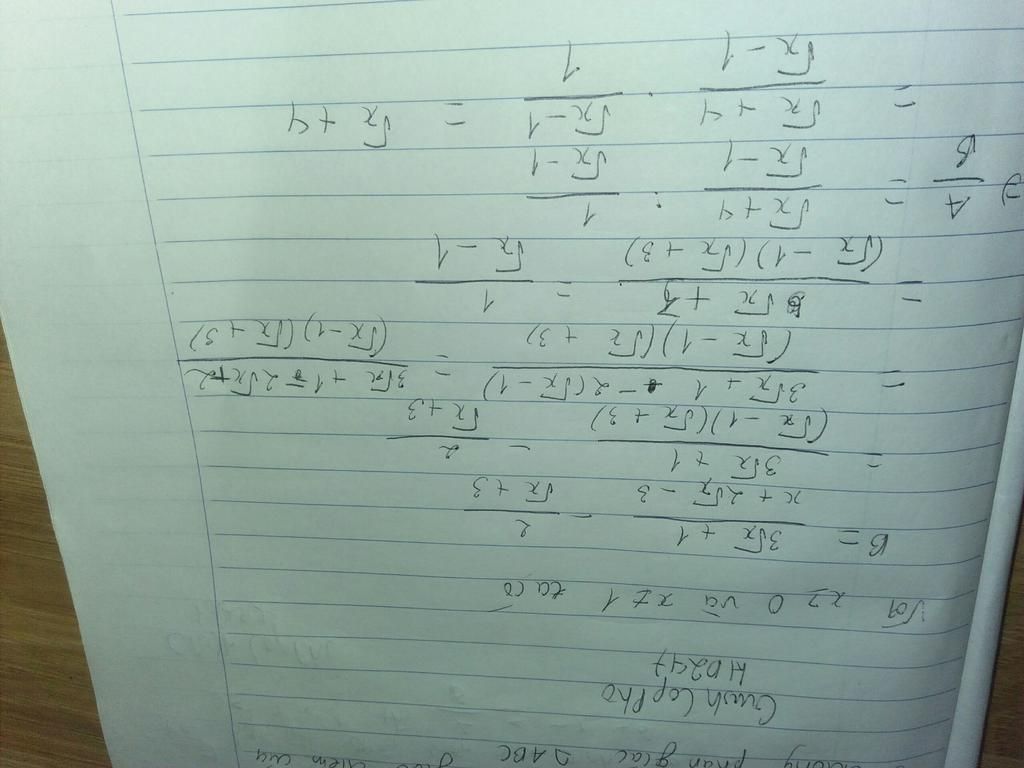 phân giác ΔABC
HD247
Với x ≥ 0 và x ≠ 1 ta có
B = (3√x + 1)/(x + 2√x - 3) - 2/(√x + 3)
= (3√x + 1)/((√x - 1)(√x + 3)) - 2/(√x + 3)
= (3√x + 1 - 2(√x - 1))/((√x - 1)(√x + 3)) = (3√x + 1 - 2√x + 2)/((√x - 1)(√x + 3))
= (√x + 3)/((√x - 1)(√x + 3)) = 1/(√x - 1)
⇒ A/B = (√x + 4)/(√x - 1) : 1/(√x - 1)
= (√x + 4)/(√x - 1) . (√x - 1)/1 = √x + 4